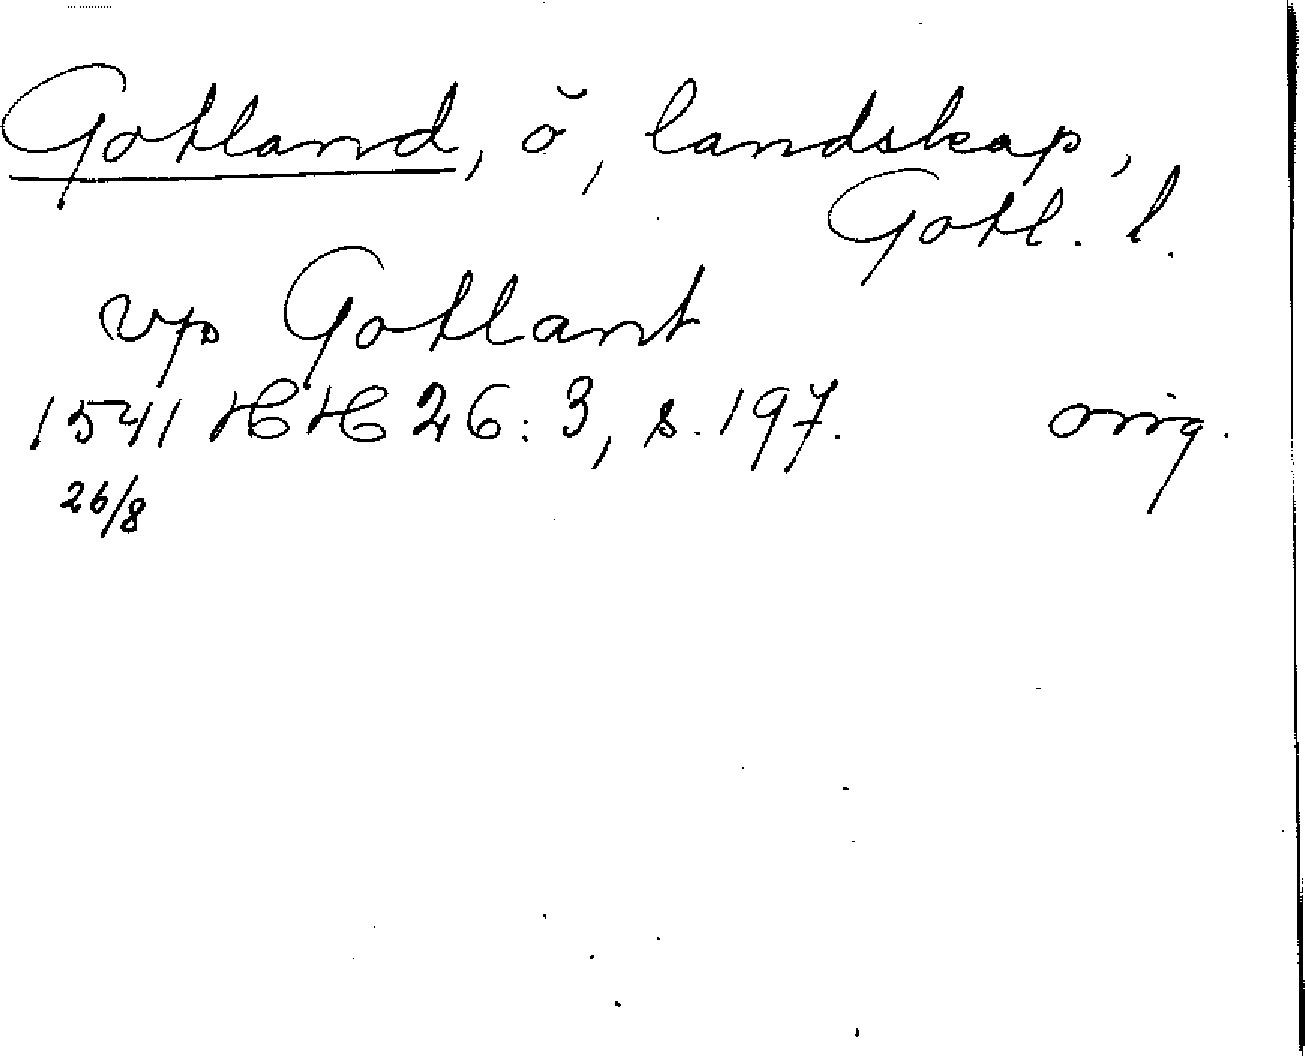 Gotland, ö, landskap,
Gotl. l.
vp Gotlant
1541 HH 26:3, s. 197. orig.
26/8